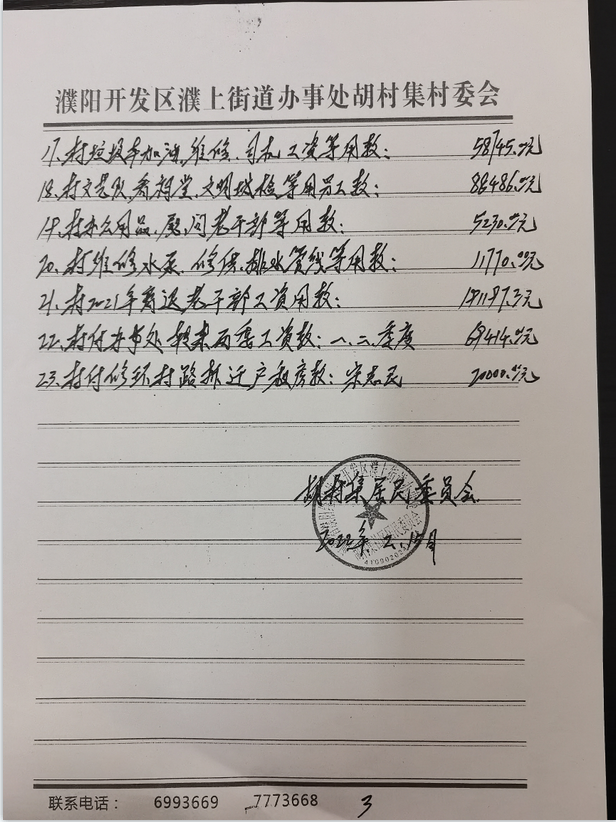 濮阳开发区濮上街道办事处胡村集村委会
17.村垃圾车加油、维修、司机工资等用款: 58745.00元
18.村文艺队、 文明城检等用劳工款: 88486.00元
19.村办公用品、慰问老干部等用款: 5230.00元
20.村维修水泵、修 排水管线等用款: 11770.00元
21.村2021年离退老干部工资用款:
22.村付办事处 两委工资款:一、二季度 69414.00元
23.村付修环村路拆迁户 款: 20000.00元
胡村集居民委员会
2022年
联系电话: 6993669 7773668 3